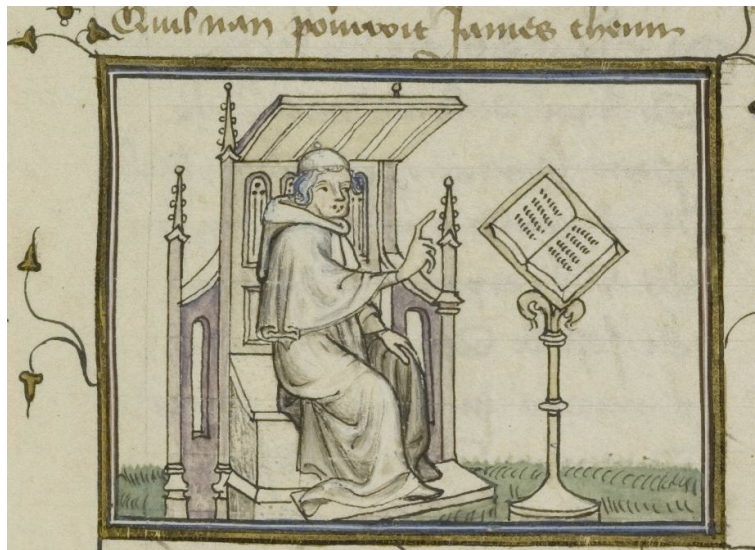 Quil nan pouvoit James thenir